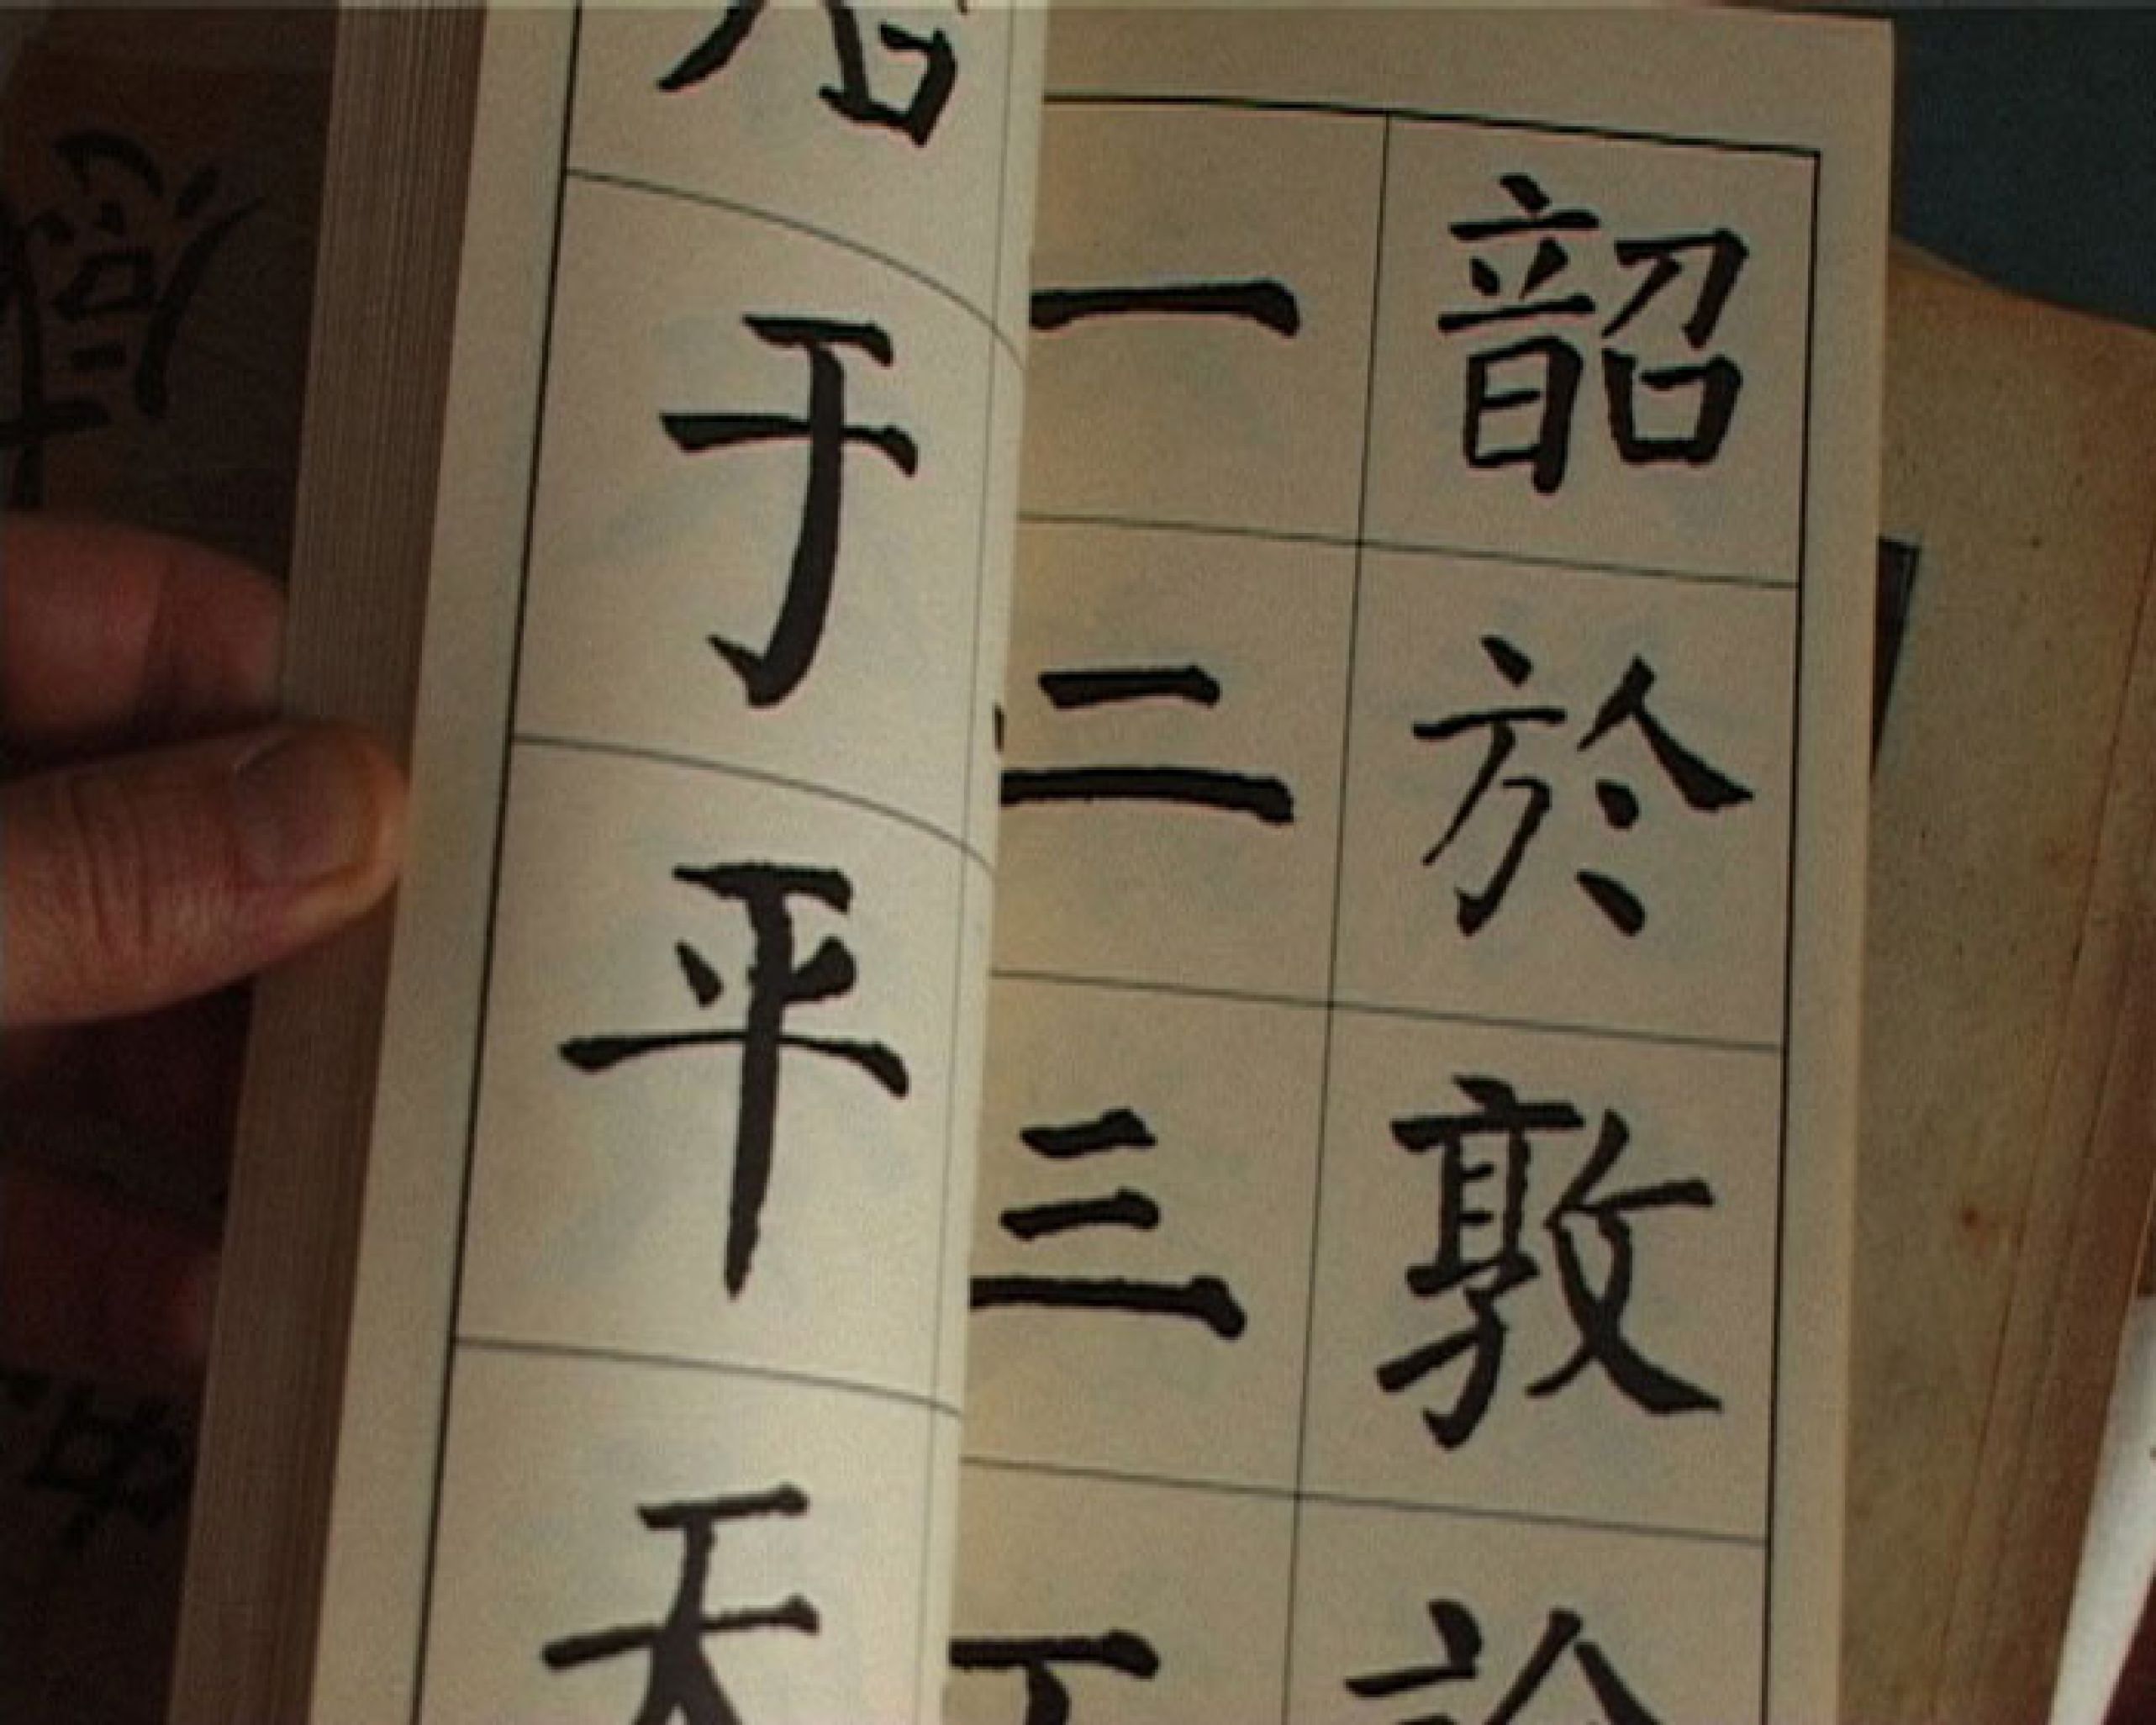 韶於敦
一二三丁
于平天